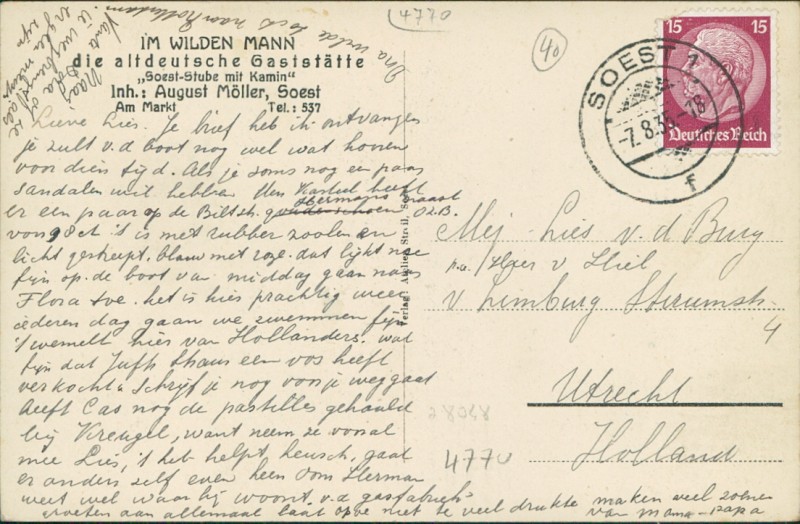 4770
40
IM WILDEN MANN
die altdeutsche Gaststätte
„Soest-Stube mit Kamin"
Inh.: August Möller, Soest
Am Markt Tel.: 537
Lieve Lies. Je brief heb ik ontvangen
je zult v.d boot nog wel wat hooren
voor dien tijd. Als je soms nog een paar
sandalen wil hebben heeft
er een paar op de Biltsh.
is met rubber zoolen en
licht gestreept, blauw met roze. dat lijkt me
fijn op de boot van middag gaan naar
Flora het is hier prachtig weer
iederen dag gaan we zwemmen fijn
't wemelt hier van Hollanders. wat
fijn dat Juffr een vos heeft
verkocht. Schrijf je nog voor je weggaat
heeft Cas nog de pastelles gehaald
bij want neem ze vooral
mee Lies, 't heb helpt, heusch, gaat
er anders zelf even heen Oom Herman
weet wel waar hij woont v.d gasfabriek
groeten aan allemaal laat opoe niet te veel drukte maken veel zoenen
van mama - papa
SOEST 1
-7.8.3 -18
f
15 15
Deutsches Reich
Mej. Lies v. d Burg
p.a. Heer v
v Limburg Stirumstr.
4
Utrecht
Holland
28048
4770